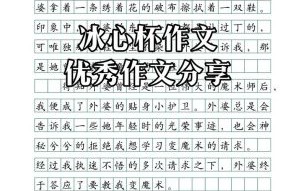 婆拿着一条绣着花的破布擦拭着一双鞋。
印象中
过丁的，
可唯独
诉我，那
是她
冰心杯作文
优秀作文分享
位伟大的魔术师后，
我便成了外婆的贴身小护卫。外婆总是会
告诉我一些她年轻时的光荣事迹，也会神
秘兮兮的拒绝我想学习变魔术的请求。
经过我执迷不悟的多次请求之下，外婆终
于答应了要教我变魔术。